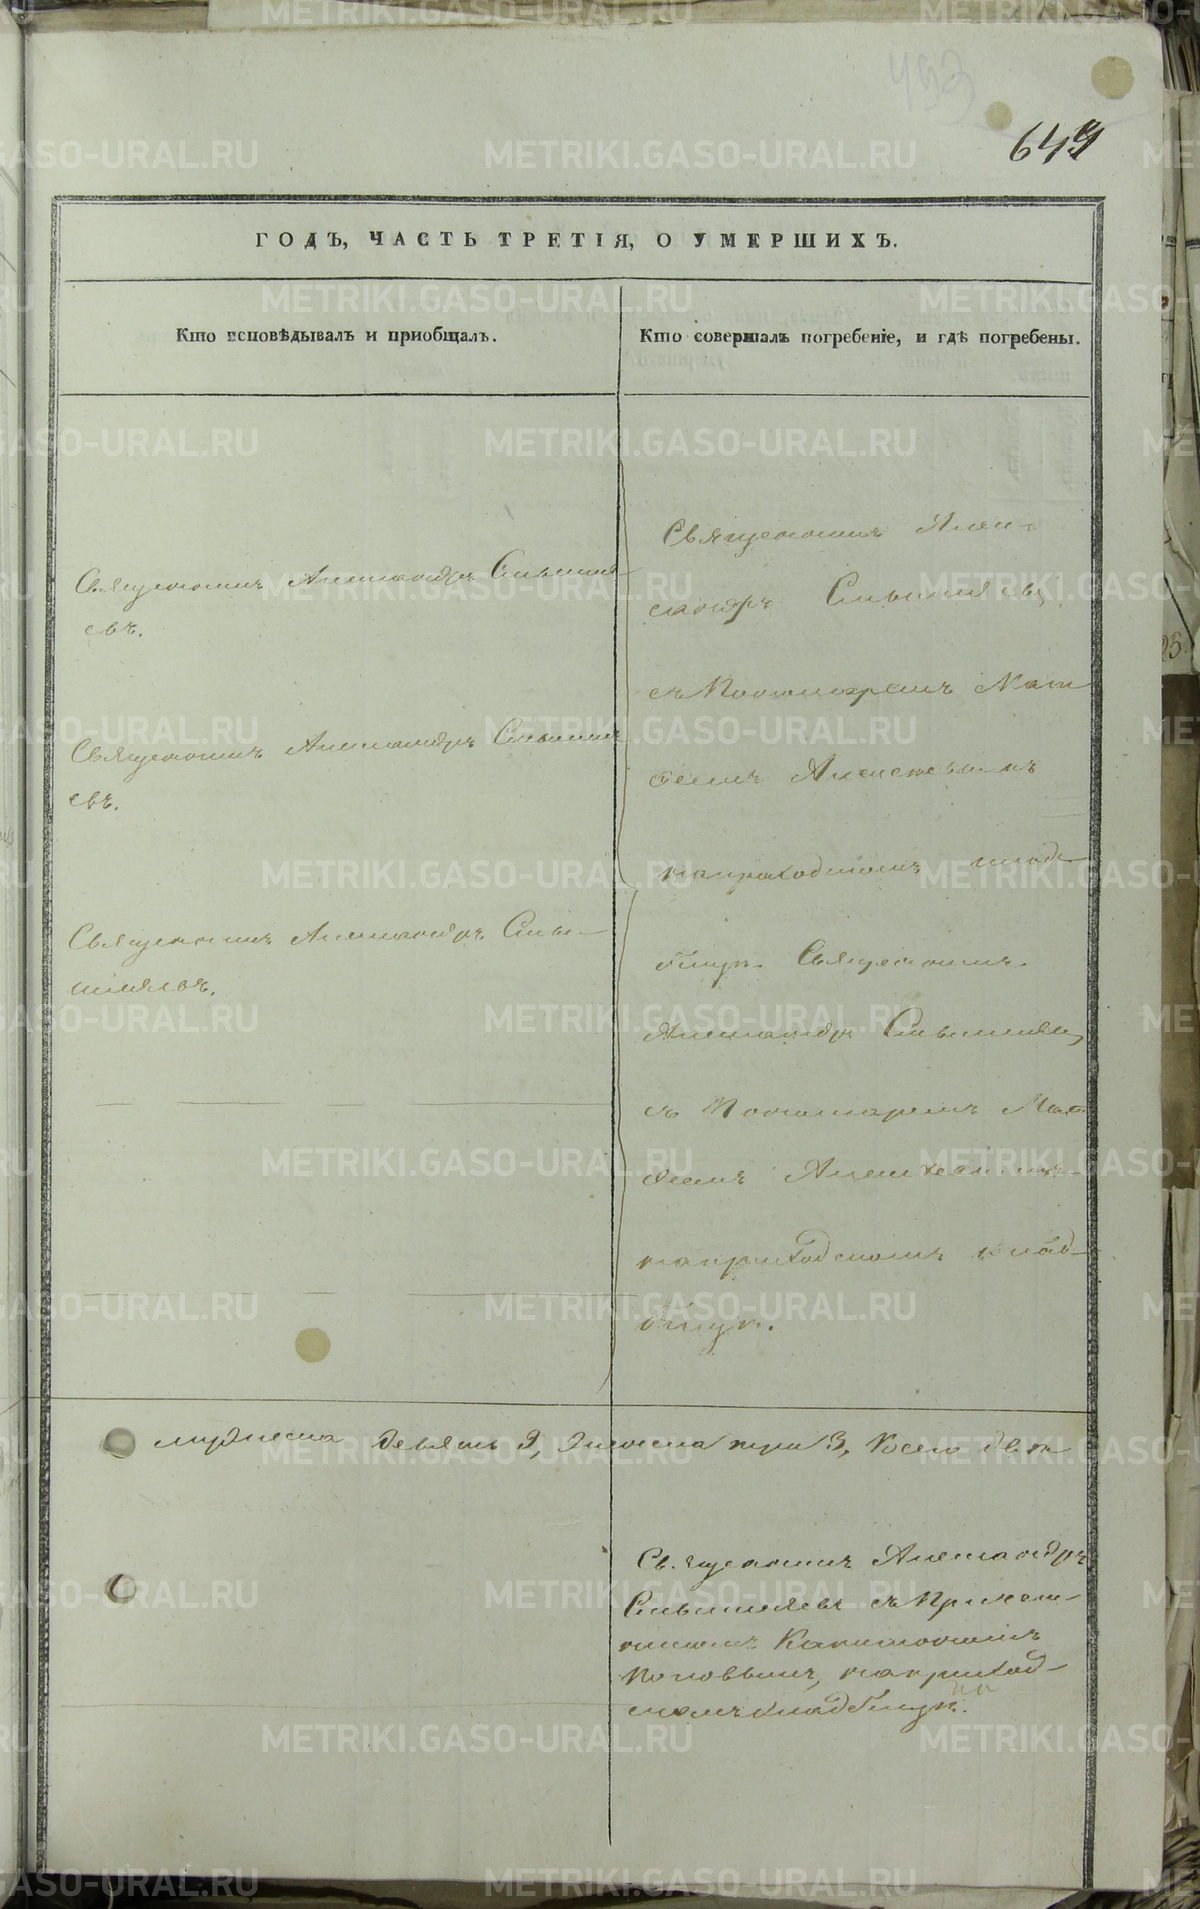 493
649
ГОДЪ, ЧАСТЬ ТРЕТІЯ, О УМЕРШИХЪ.
Кто исповѣдывалъ и пріобщалъ.
Кто совершалъ погребеніе, и гдѣ погребены.
Священникъ Александръ
евъ.
Священникъ Александръ
евъ.
Священникъ Александръ
Священникъ Алек-
сандръ
съ Пономаремъ Мат
феемъ Алексеевымъ
на приходскомъ клад-
бищѣ. Священникъ
Александръ
съ Пономаремъ Мат
феемъ Алексеевымъ
на приходскомъ клад-
бищѣ.
мужеска девять 9, женска три 3, Всего две
Священникъ Александръ
съ Причет-
никомъ Капитономъ
Поповымъ, на приход-
скомъ кладбищѣ.
METRIKI.GASO-URAL.RU